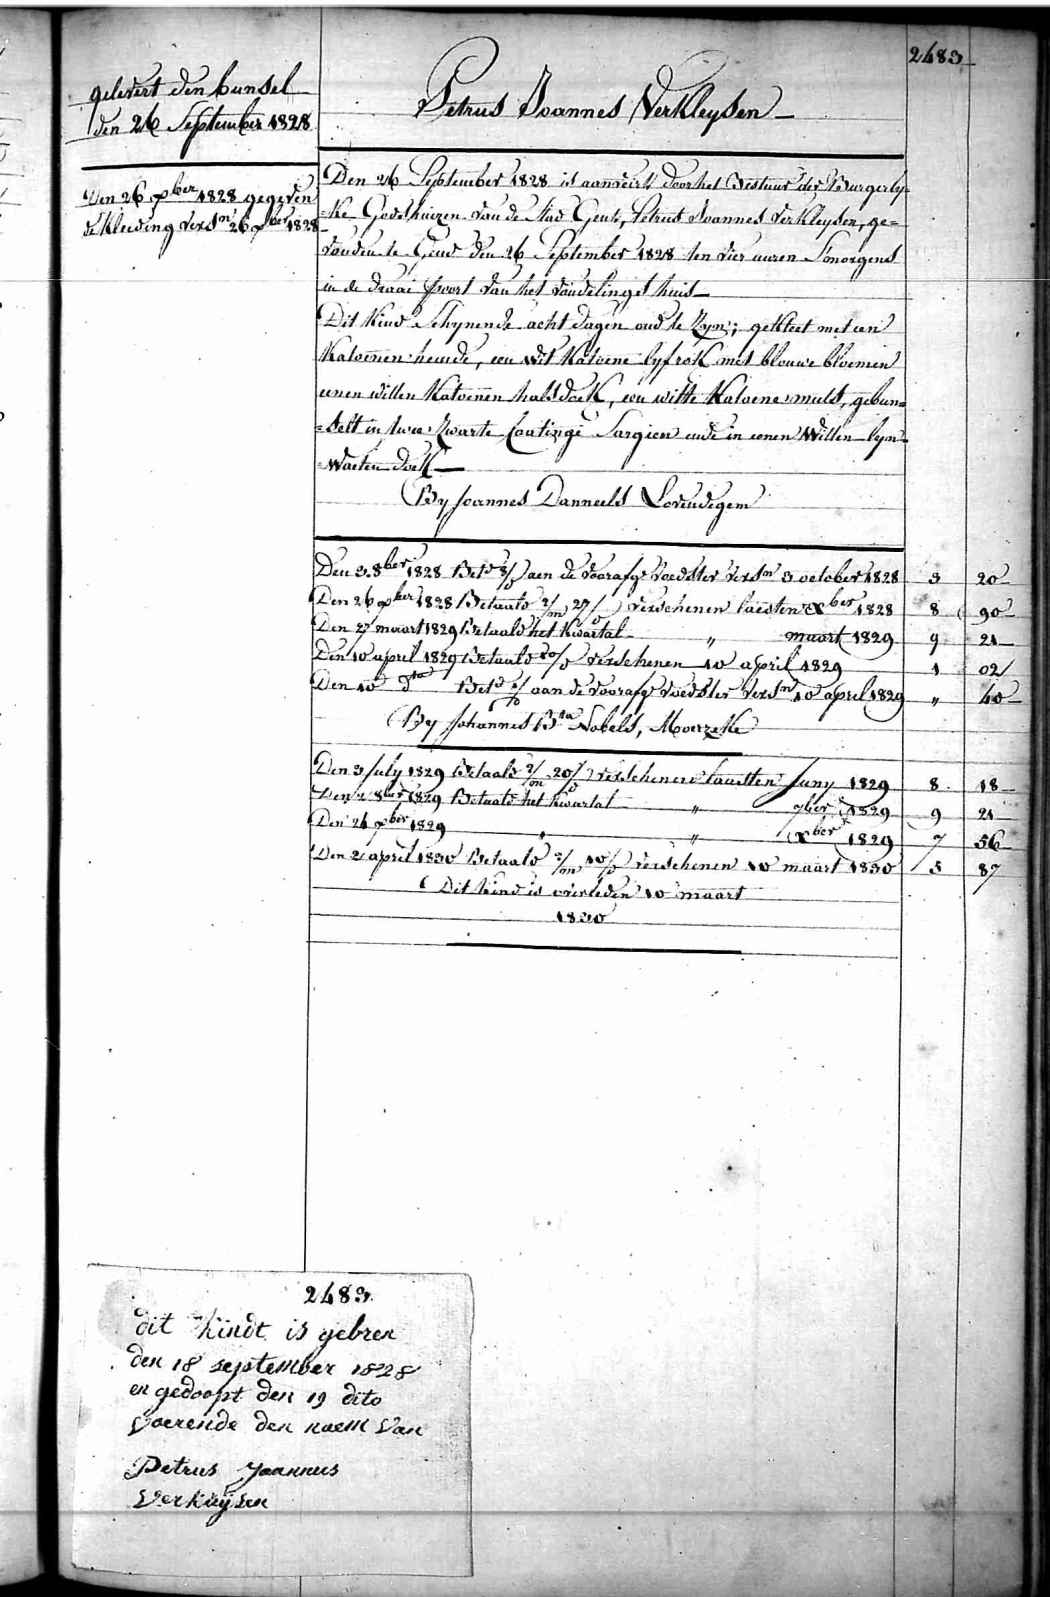 2483
gelevert den bunsel
den 26 September 1828
Petrus Joannes Verkleysen
Den 26 xber 1828 gegeven
de kleeding versn 26 xber 1828
Den 26 September 1828 is aanveird door het Bestuur der Burgerly-
=ke Godshuizen van de Stad Gent, Petrus Joannes Verkleysen, ge=
vonden te Gend den 26 September 1828 ten vier uuren S'morgens
in de draai poort van het vondelingshuis
Dit kind Schynende acht dagen oud te Zyn; gekleet met een
Katoenen hemde, een wit Katoene lyfrok met blouwe bloemen
eenen witten Katoenen halsdoek, een witte Katoene muts, gebun=
=delt in twee Zwarte Sargien ende in eenen Witten lyn-
=waeten doek
By Joannes Danneels Lovendegem
Den 3 8ber 1828 Betd aen de voorafge voedster versn 3 october 1828 3 20
Den 26 xber 1828 Betaald 2/m 27/d verschenen laesten xber 1828 8 90
Den 27 maart 1829 Betaald het kwartal " maart 1829 9 21
Den 10 april 1829 Betaald 10/d verschenen 10 april 1829 1 02
Den 10 dto Betd aan de voorafge voedster versn 10 april 1829 " 40
By Johannes Bta Nobels, Moerzeke
Den 3 July 1829 Betaald 2/m 20/d verschenen laesten Juny 1829 8 18
Den 2 8ber 1829 Betaald het kwartal " 7ber 1829 9 21
Den 24 xber 1829 " " xber 1829 7 56
Den 2 april 1830 Betaald 2/m 10/d verschenen 10 maart 1830 5 87
Dit kind is overleden 10 maart
1830
2483
dit kindt is gebren
den 18 september 1828
en gedoopt den 19 dito
voerende den naem van
Petrus Joannes
Verkleijsen